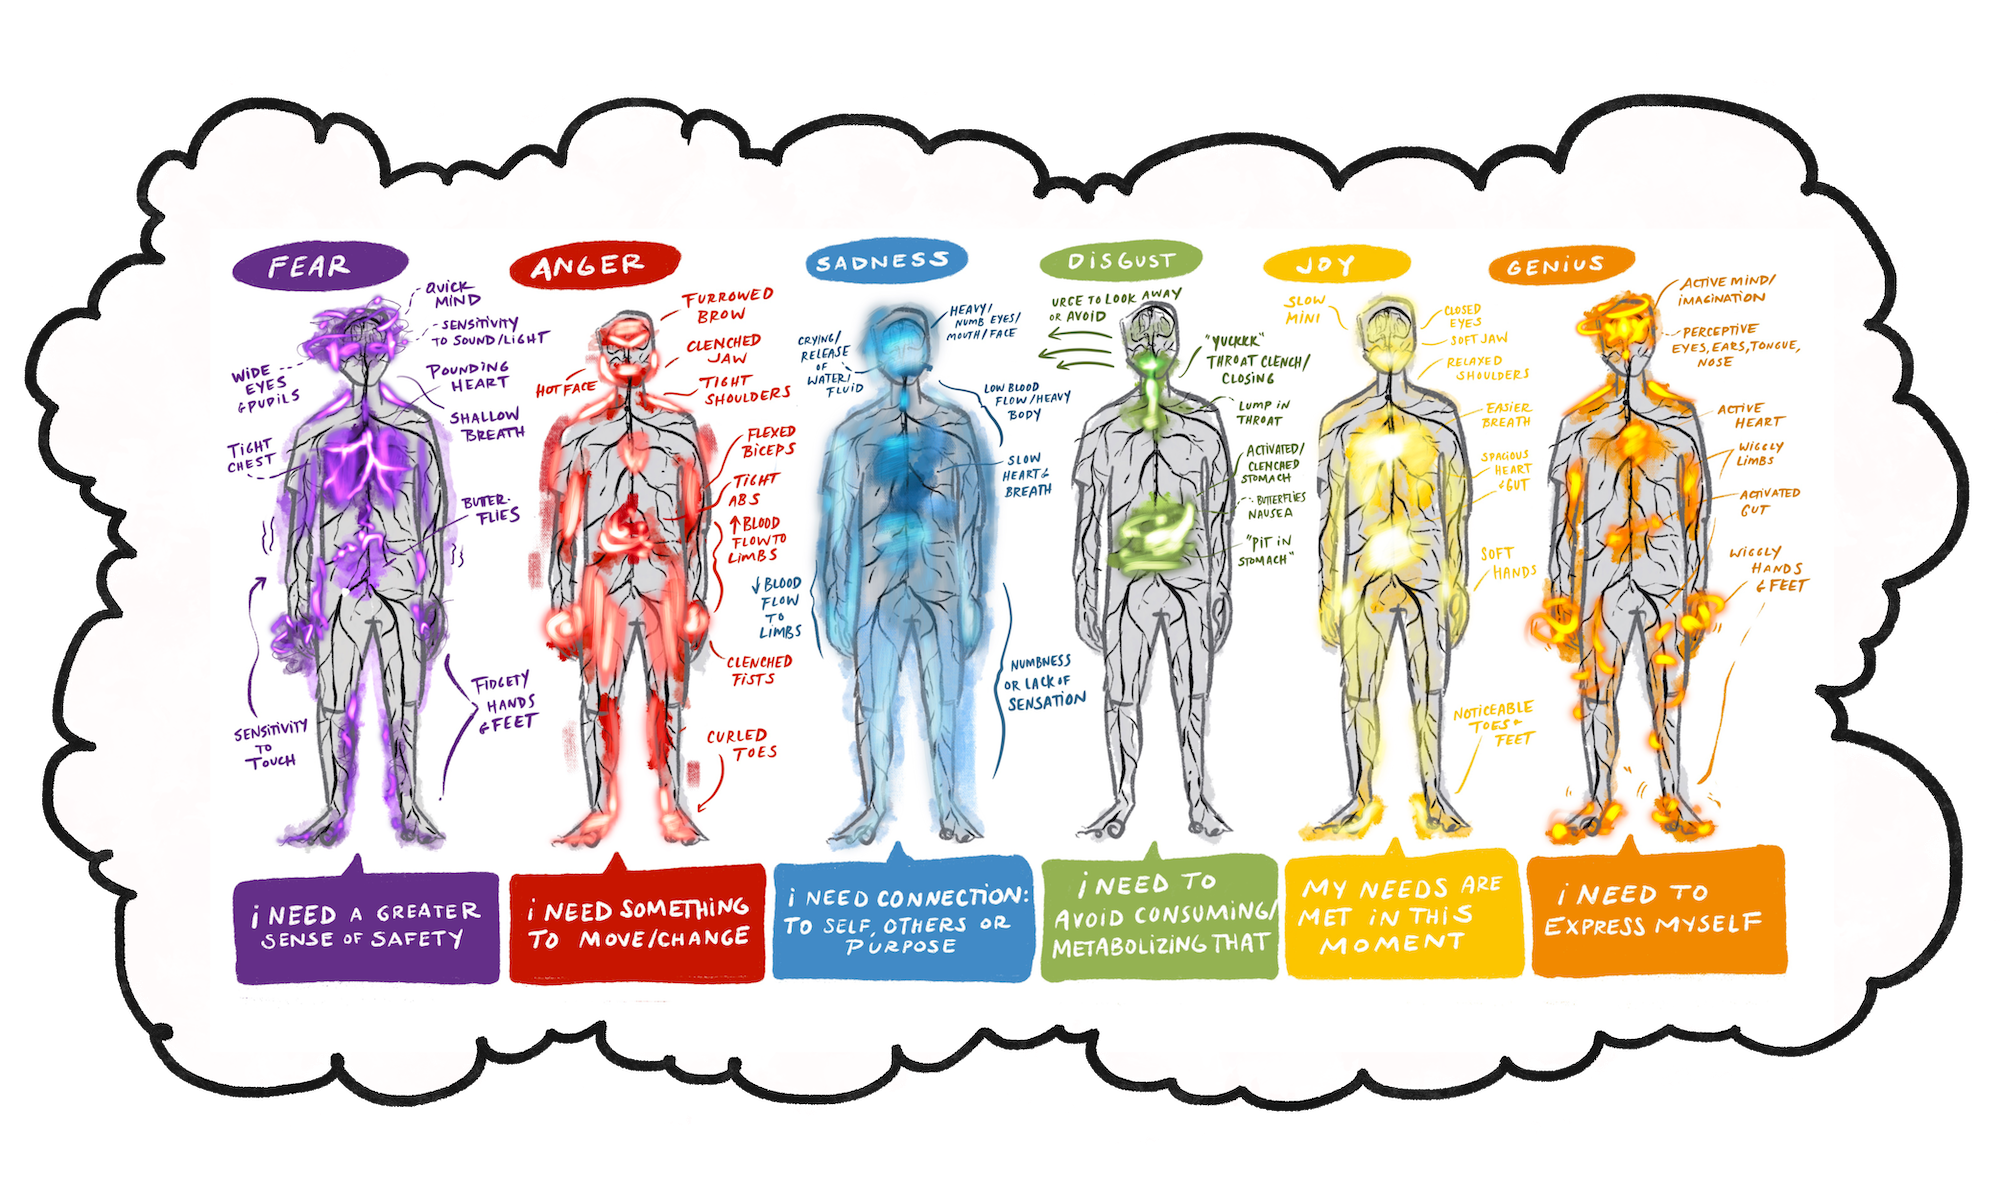 FEAR
QUICK
MIND
SENSITIVITY
TO SOUND/LIGHT
WIDE
EYES
& PUPILS
POUNDING
HEART
SHALLOW
BREATH
TIGHT
CHEST
BUTTER-
FLIES
SENSITIVITY
TO
TOUCH
FIDGETY
HANDS
& FEET
I NEED A GREATER
SENSE OF SAFETY
ANGER
FURROWED
BROW
CLENCHED
JAW
HOT FACE
TIGHT
SHOULDERS
FLEXED
BICEPS
TIGHT
ABS
↑ BLOOD
FLOW TO
LIMBS
CLENCHED
FISTS
CURLED
TOES
I NEED SOMETHING
TO MOVE/CHANGE
SADNESS
HEAVY/
NUMB EYES/
MOUTH/FACE
CRYING/
RELEASE
OF
WATER/
FLUID
LOW BLOOD
FLOW/HEAVY
BODY
SLOW
HEART &
BREATH
↓ BLOOD
FLOW
TO
LIMBS
NUMBNESS
OR LACK OF
SENSATION
I NEED CONNECTION:
TO SELF, OTHERS OR
PURPOSE
DISGUST
URGE TO LOOK AWAY
OR AVOID
"YUCKKK"
THROAT CLENCH/
CLOSING
LUMP IN
THROAT
ACTIVATED/
CLENCHED
STOMACH
BUTTERFLIES
NAUSEA
"PIT IN
STOMACH"
I NEED TO
AVOID CONSUMING/
METABOLIZING THAT
JOY
SLOW
MINI
CLOSED
EYES
SOFT JAW
RELAXED
SHOULDERS
EASIER
BREATH
SPACIOUS
HEART
& GUT
SOFT
HANDS
NOTICEABLE
TOES +
FEET
MY NEEDS ARE
MET IN THIS
MOMENT
GENIUS
ACTIVE MIND/
IMAGINATION
PERCEPTIVE
EYES, EARS, TONGUE,
NOSE
ACTIVE
HEART
WIGGLY
LIMBS
ACTIVATED
GUT
WIGGLY
HANDS
& FEET
I NEED TO
EXPRESS MYSELF